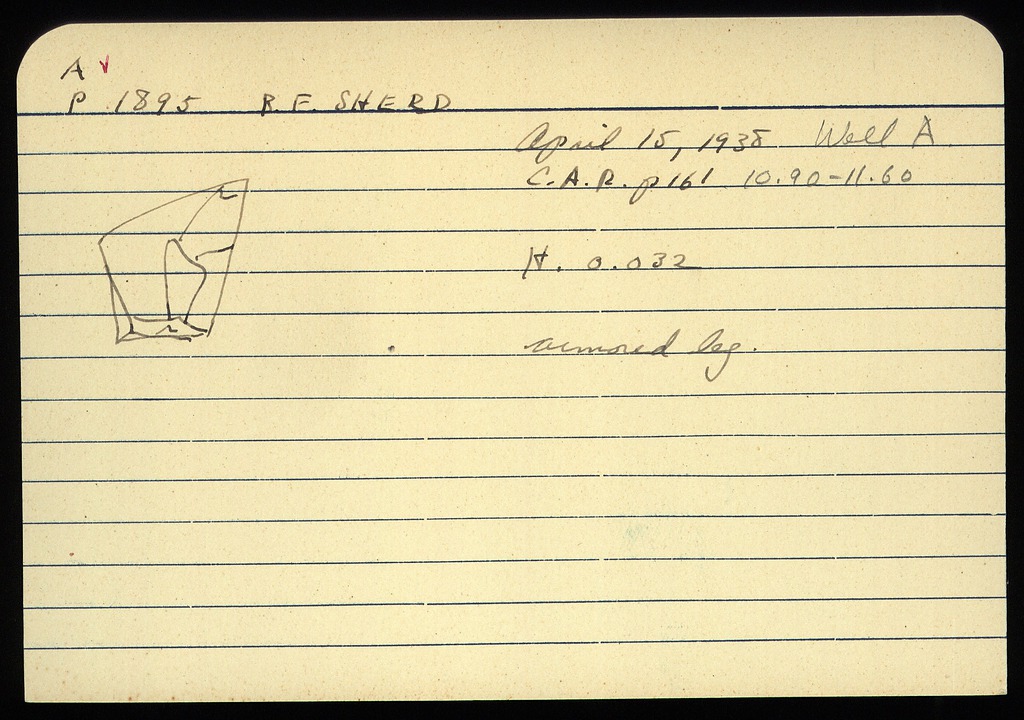 A
P 1895 R.F. SHERD
April 15, 1938 Well A
C.A.R. p 161 10.90-11.60
H. 0.032
armored leg.